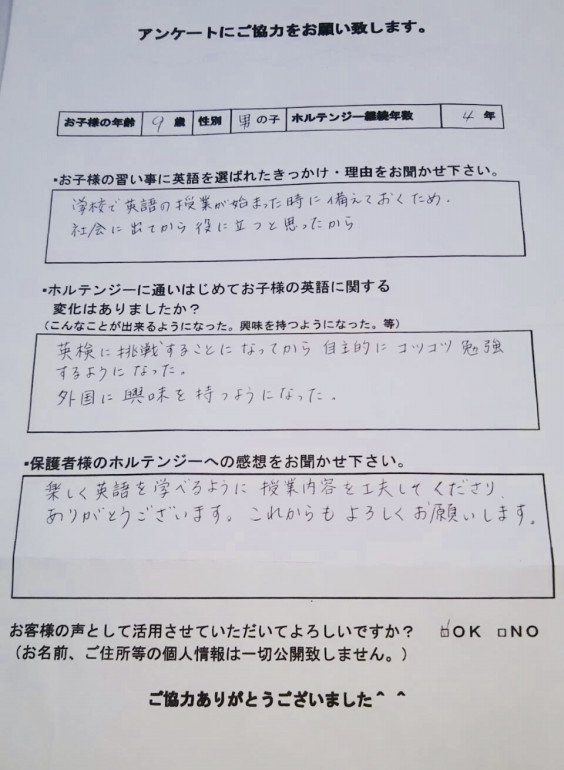 アンケートにご協力をお願い致します。
お子様の年齢 9 歳 性別 男の子 ホルテンジー継続年数 4 年
・お子様の習い事に英語を選ばれたきっかけ・理由をお聞かせ下さい。
学校で英語の授業が始まった時に備えておくため.
社会に出てから役に立つと思ったから
・ホルテンジーに通いはじめてお子様の英語に関する
変化はありましたか？
（こんなことが出来るようになった。興味を持つようになった。等）
英検に挑戦することになってから自主的にコツコツ勉強
するようになった。
外国に興味を持つようになった。
・保護者様のホルテンジーへの感想をお聞かせ下さい。
楽しく英語を学べるように授業内容を工夫してくださり
ありがとうございます。これからもよろしくお願いします。
お客様の声として活用させていただいてよろしいですか？ ☑OK □NO
（お名前、ご住所等の個人情報は一切公開致しません。）
ご協力ありがとうございました＾ ＾